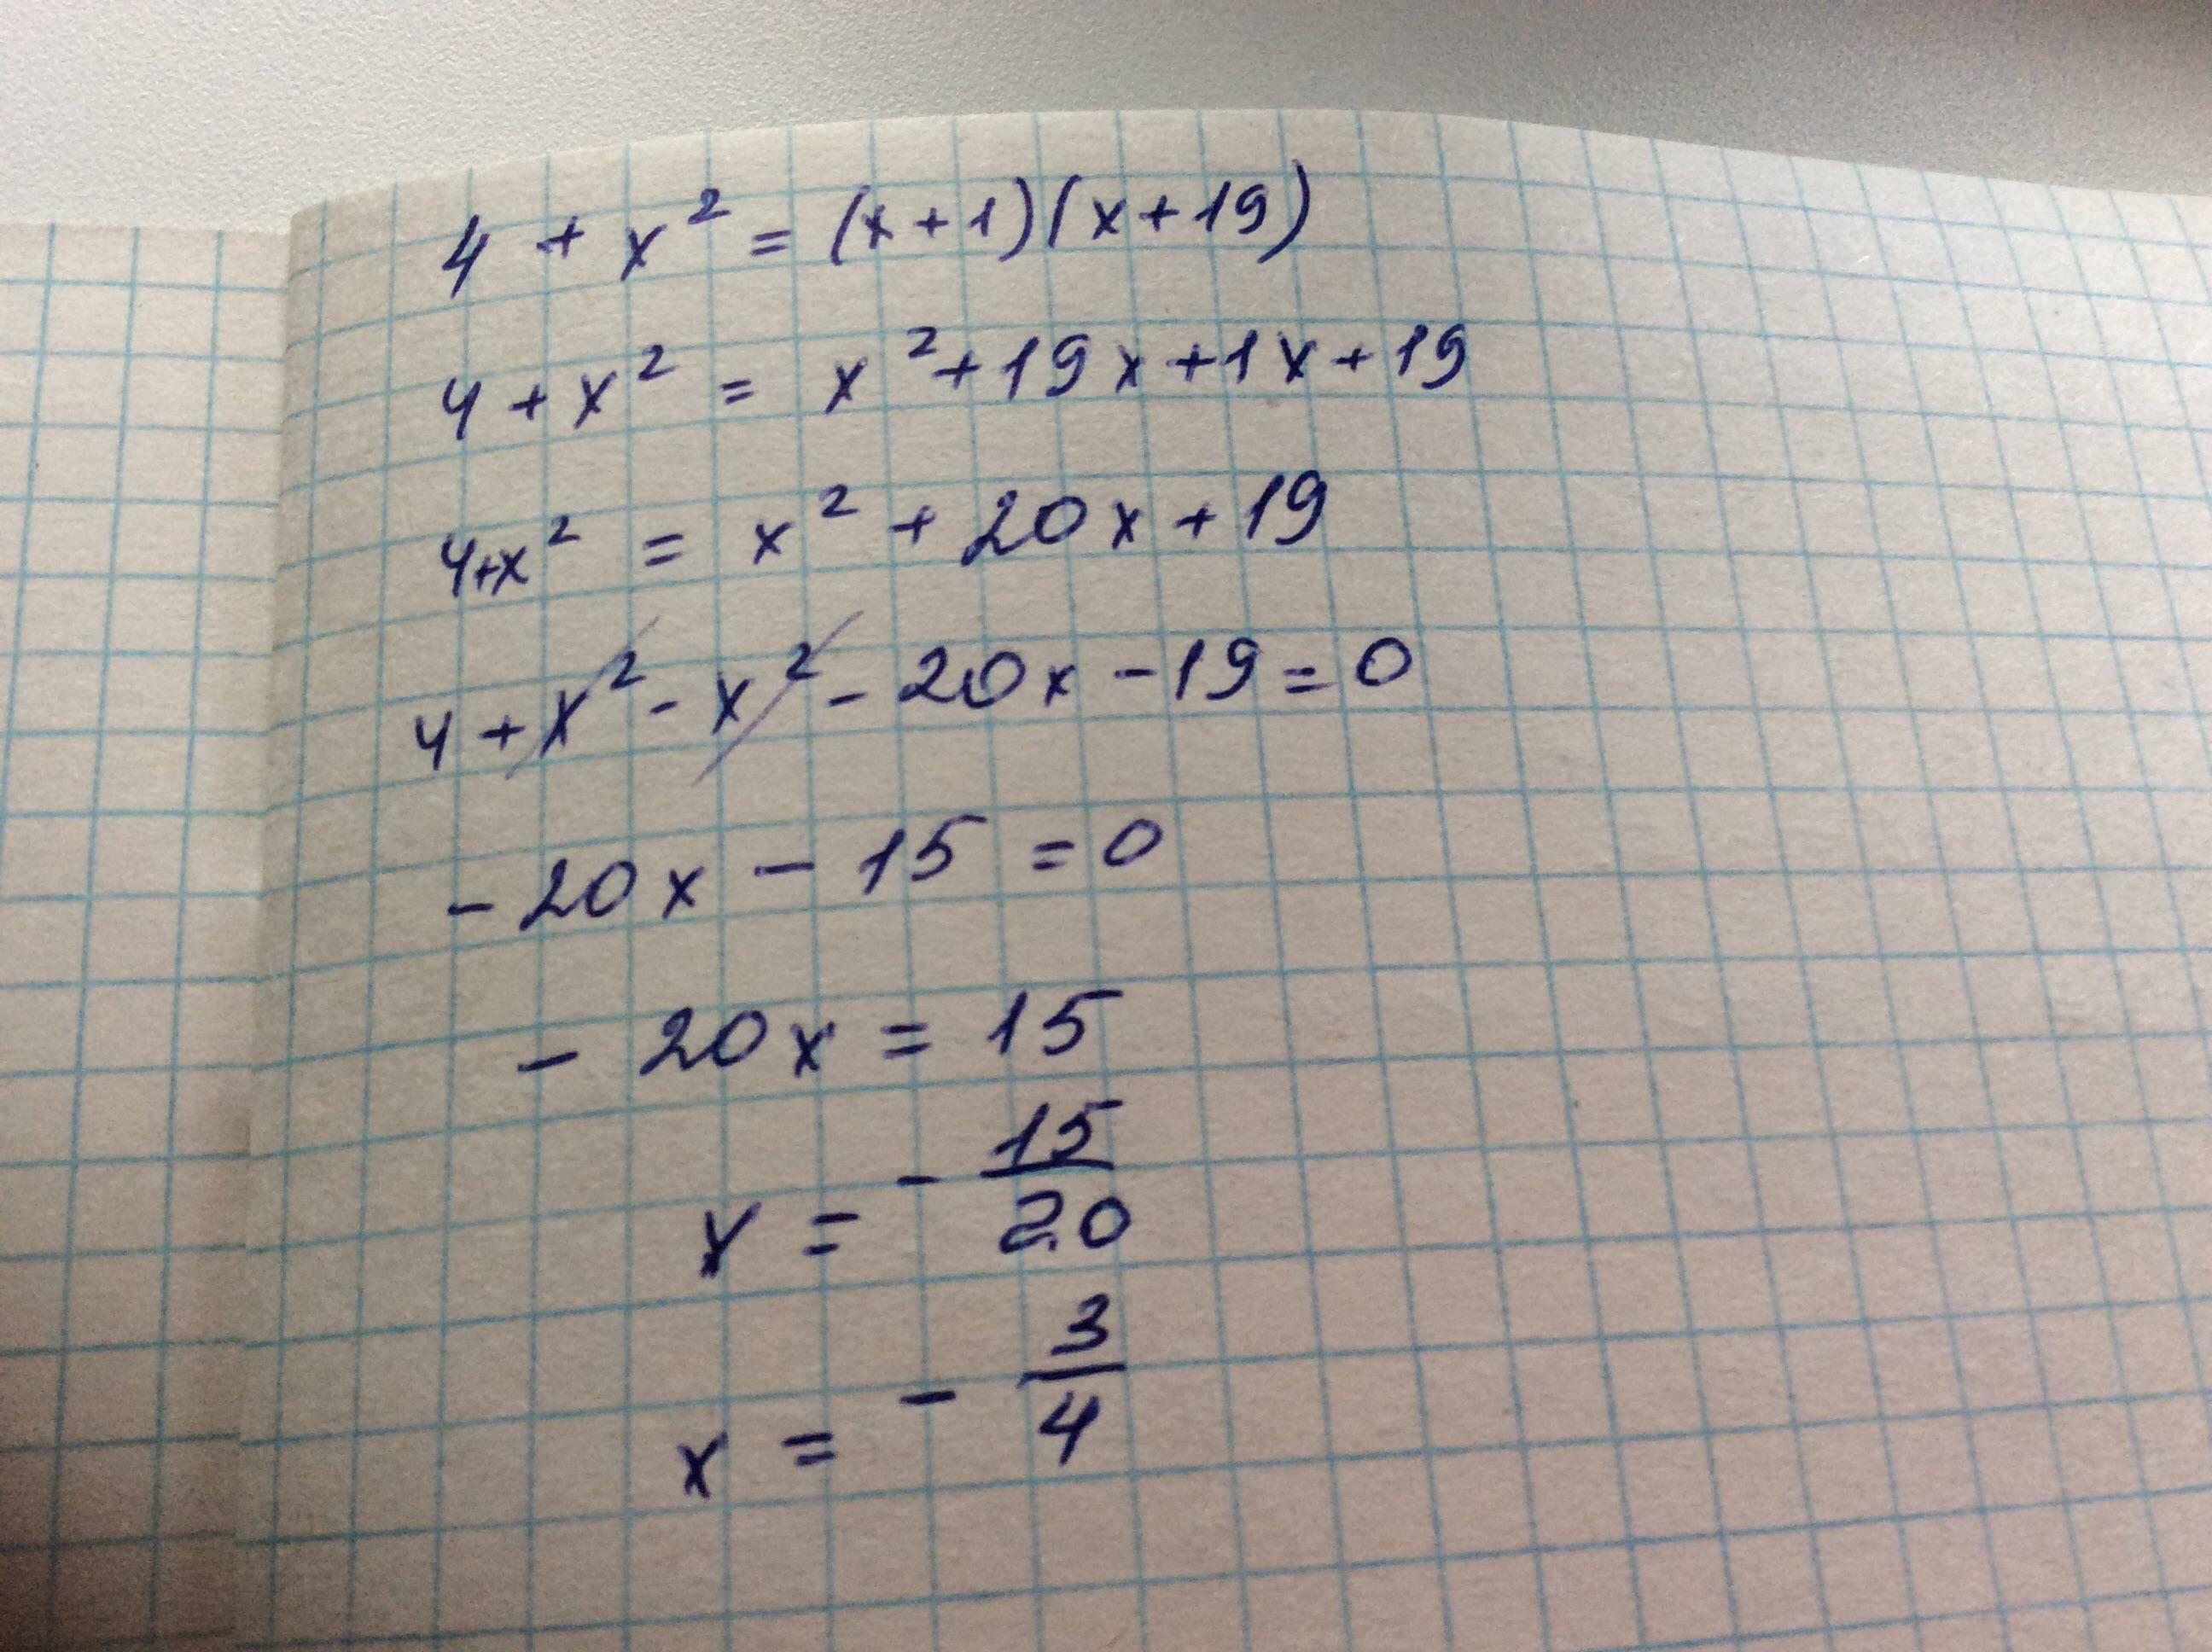 4 + x² = (x+1)(x+19)
4 + x² = x² + 19x + 1x + 19
4+x² = x² + 20x + 19
4 + x² - x² - 20x - 19 = 0
- 20x - 15 = 0
- 20x = 15
x = - 15/20
x = - 3/4